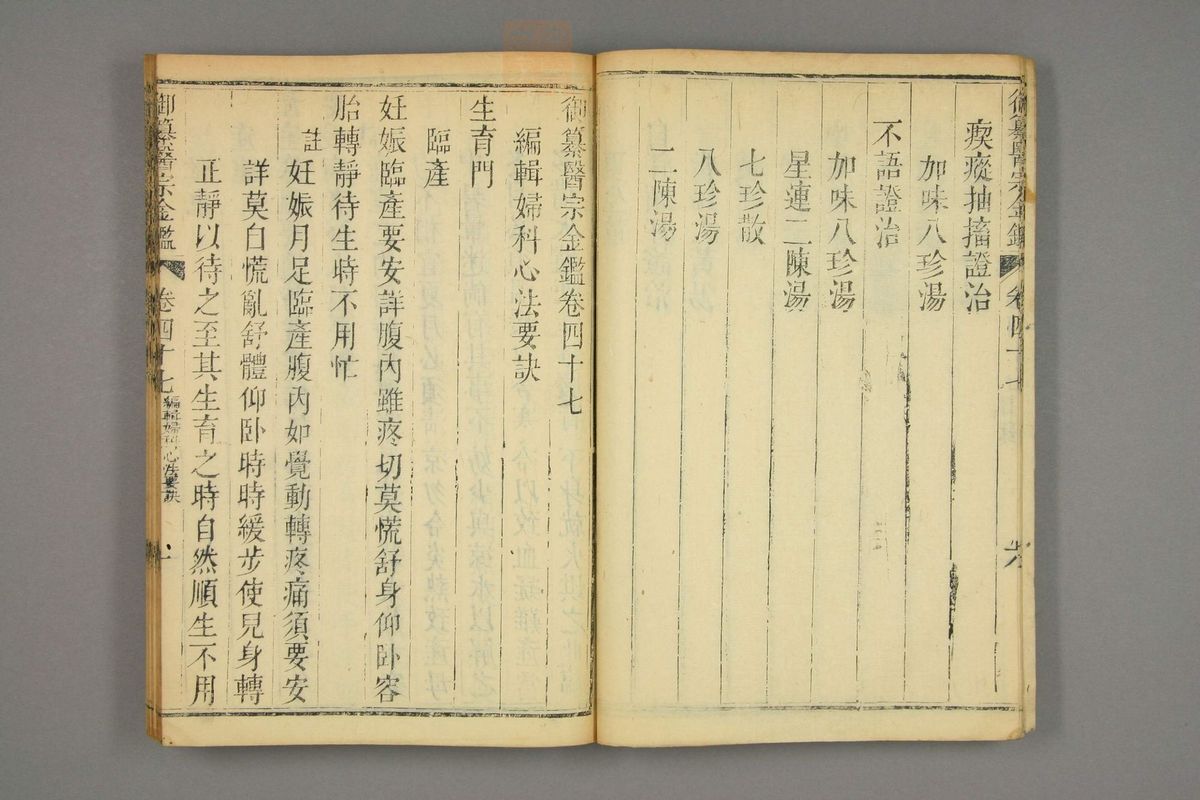 御纂醫宗金鑑 卷四十七 六
瘈瘲抽搐證治
加味八珍湯
不語證治
加味八珍湯
星連二陳湯
七珍散
八珍湯
二陳湯
御纂醫宗金鑑卷四十七
編輯婦科心法要訣
生育門
臨產
妊娠臨產要安詳腹內雖疼切莫慌舒身仰臥容
胎轉靜待生時不用忙
註 妊娠月足臨產腹內如覺動轉疼痛須要安
詳莫自慌亂舒體仰臥時時緩步使兒身轉
正靜以待之至其生育之時自然順生不用
御纂醫宗金鑑 卷四十七 編輯婦科心法要訣 一